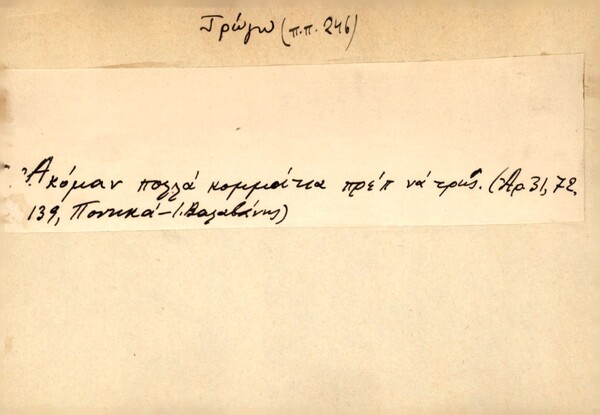 Τρώγω (π.π. 246)
Ἀκόμαν πολλά κομμάτια πρέπ νά τρῶς. (Ἀρ 31, 72,
139, Ποντικά - Ι. Βαλαβάνης)